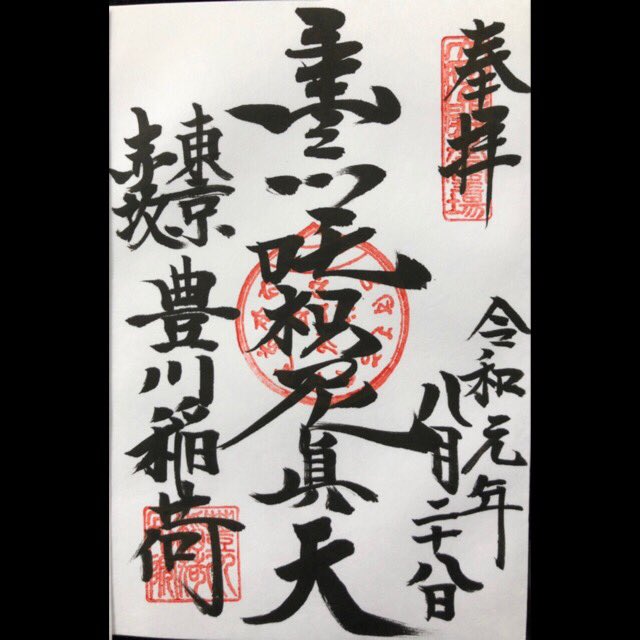 奉拝
令和元年
八月二十八日
豊川吒枳尼眞天
東京
赤坂
豊川稲荷